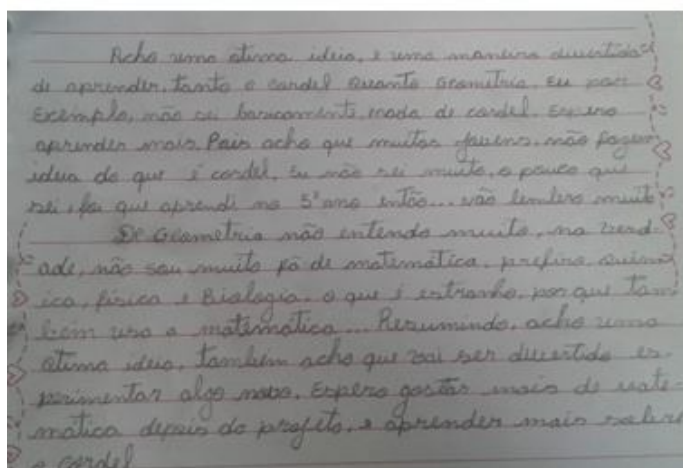 Acho uma otima ideia, e uma maneira divertida
de aprender, tanto o cordel quanto Geometria. Eu por
Exemplo, não sei basicamente nada de cordel. Espero
aprender mais. Pois acho que muitos jovens, não fazem
ideia do que é cordel, Eu não sei muito, o pouco que
sei, foi que aprendi no 5º ano então... não lembro muito
De Geometria não entendo muito, na verd-
ade, não sou muito fã de matemática. prefiro quím
ica, física e Biologia. o que é estranho, porque tam
bem usa a matemática... Resumindo, acho uma
otima ideia, tambem acho que vai ser divertido es
perimentar algo novo. Espero gostar mais de mate-
mática depois do projeto, e aprender mais sobre
o cordel